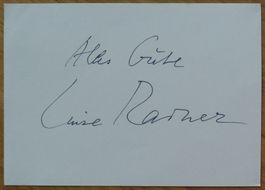 Alles Gute
Luise Rainer